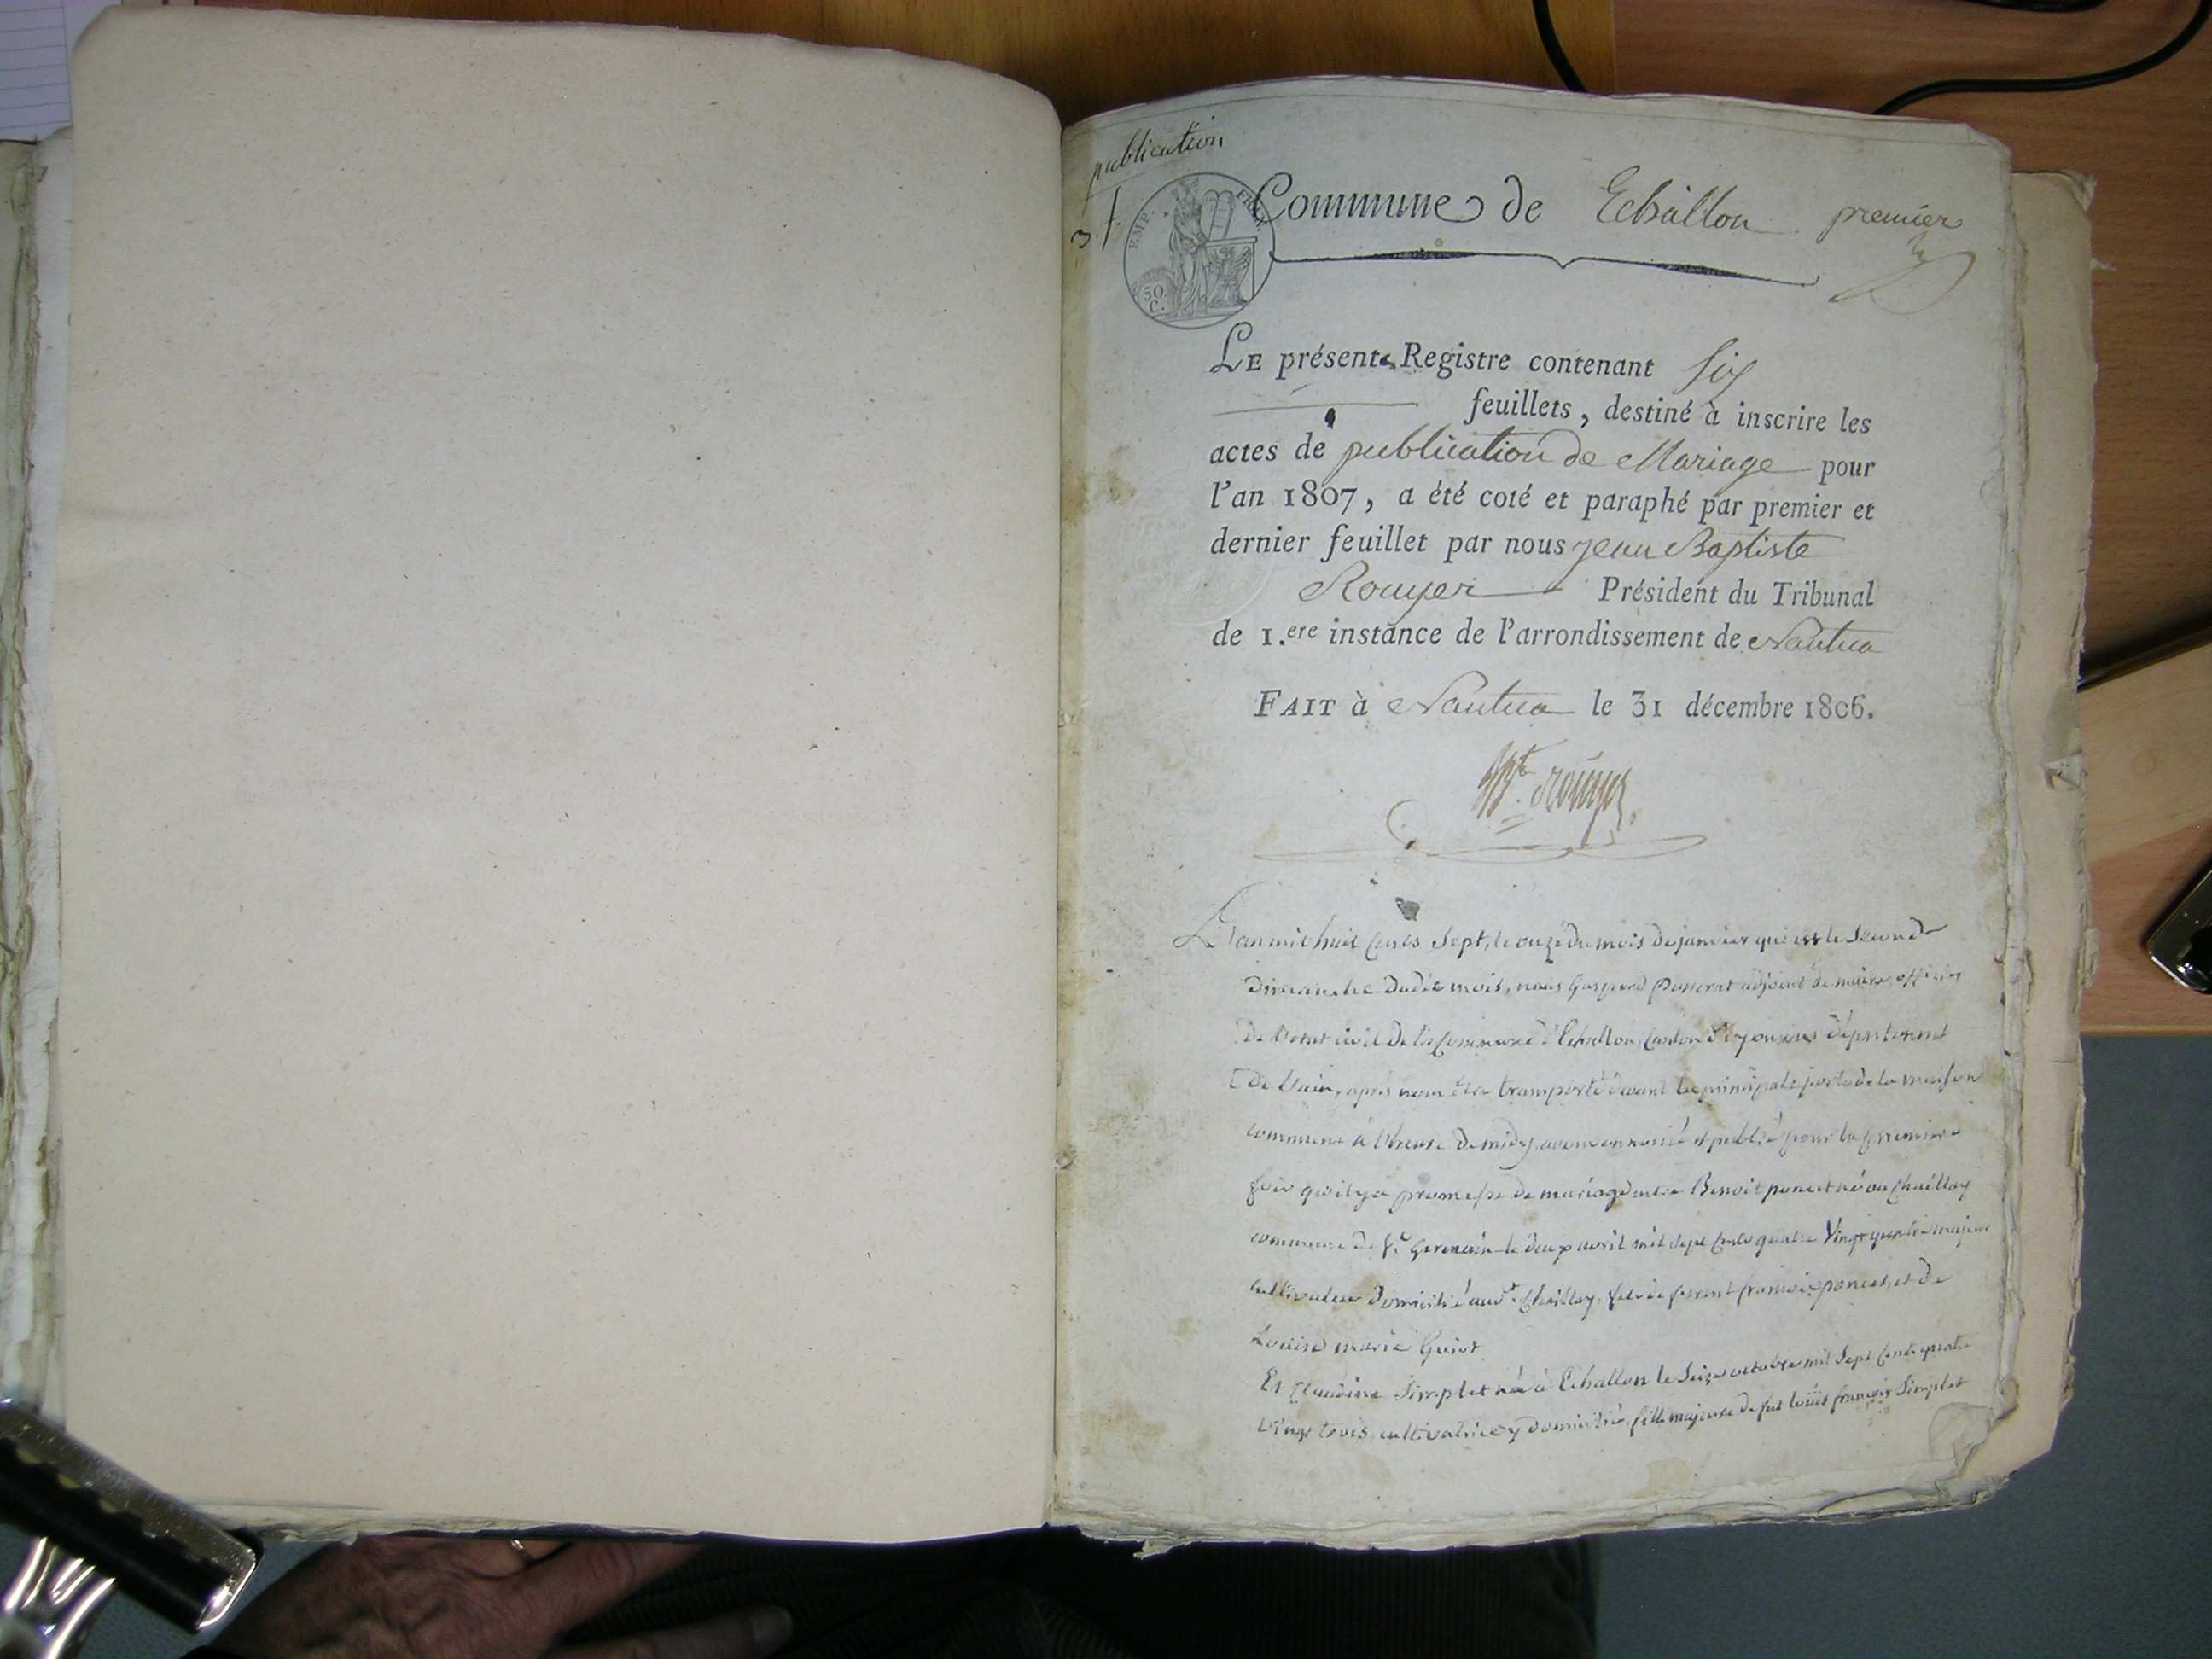 publication
3.f.
EMP. FRAN.
50 C.
Commune de Echallon premier
LE présent Registre contenant six
feuillets, destiné à inscrire les
actes de publication de Mariage pour
l'an 1807, a été coté et paraphé par premier et
dernier feuillet par nous jean Baptiste
Rouyer Président du Tribunal
de 1.ere instance de l'arrondissement de Nantua
FAIT à Nantua le 31 décembre 1806.
Bte. rouyer
L'an mil huit cents sept, le onze du mois de janvier qui est le second
dimanche dudit mois, nous Gaspard Passerat adjoint de maire officier
de l'etat civil de la commune d'Echallon, canton d'oyonnax département
de l'ain, après nous être transporté devant la principale porte de la maison
commune à l'heure de midy, avons annoncé et publié pour la premiere
fois qu'il y a promesse de mariage entre Benoit poncet né au Chaillay
commune de St. Germain le deux avril mil sept cents quatre vingt quatre majeur
cultivateur domicilié audt. Chaillay, fils de françois poncet, et de
Louise marie Guiot
Et Claudine Simplet née à Echallon le seize octobre mil sept cents quatre
vingt trois cultivatrice y domiciliée, fille majeure de feu loüis françois Simplet